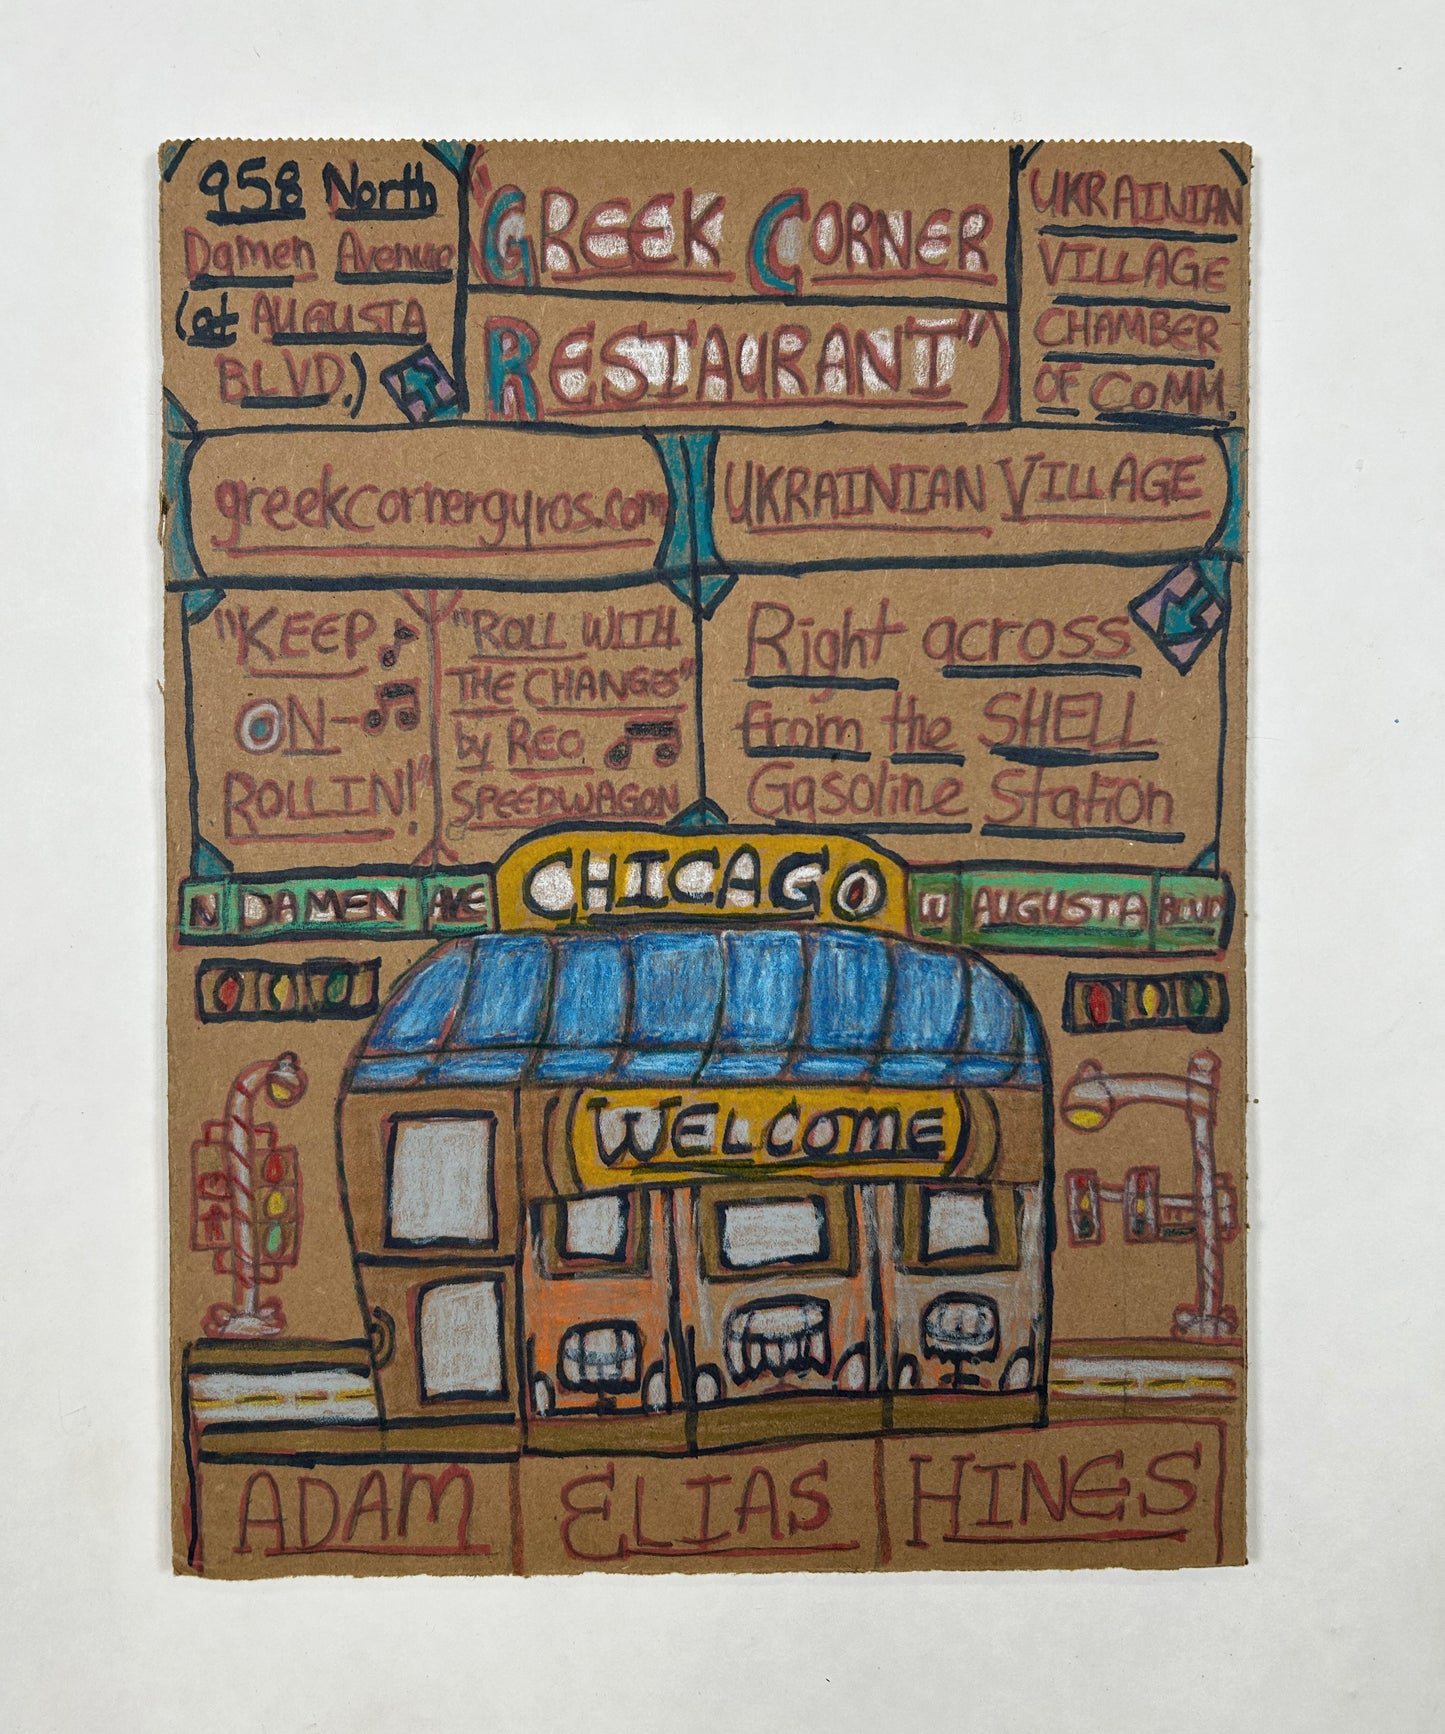 958 North
Damen Avenue
(at AUGUSTA
BLVD.)
"GREEK CORNER
RESTAURANT")
UKRAINIAN
VILLAGE
CHAMBER
OF COMM.
greekcornergyros.com
UKRAINIAN VILLAGE
"KEEP
ON-
ROLLIN!"
"ROLL WITH
THE CHANGES"
by REO
SPEEDWAGON
Right across
from the SHELL
Gasoline Station
N DAMEN AVE
CHICAGO
W AUGUSTA BLVD
WELCOME
ADAM ELIAS HINES